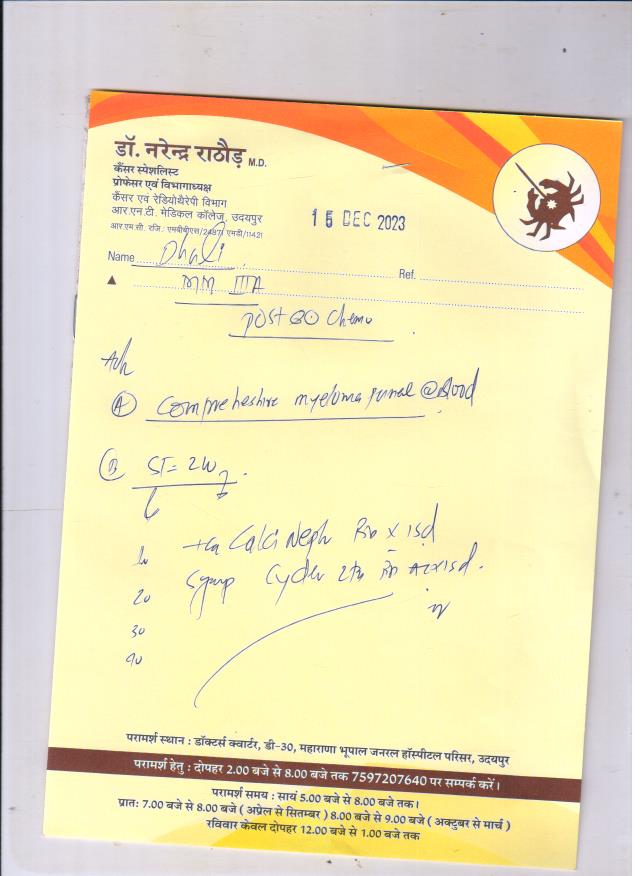 डॉ. नरेन्द्र राठौड़ M.D.
कैंसर स्पेशलिस्ट
प्रोफेसर एवं विभागाध्यक्ष
कैंसर एवं रेडियोथैरेपी विभाग
आर.एन.टी. मेडिकल कॉलेज, उदयपुर
आर.एम.सी. रजि.: एमबीबीएस/24871 एमडी/11421
15 DEC 2023
Name Dhali Ref.
MM IIIA
POST Chemo
Adv
(A) compreheshive myeloma @ Blood
(B) ST = 2W
10 Calci Neph x 15d
20 Syrup x 15d
30
40
परामर्श स्थान : डॉक्टर्स क्वार्टर, डी-30, महाराणा भूपाल जनरल हॉस्पीटल परिसर, उदयपुर
परामर्श हेतु : दोपहर 2.00 बजे से 8.00 बजे तक 7597207640 पर सम्पर्क करें।
परामर्श समय : सायं 5.00 बजे से 8.00 बजे तक।
प्रातः 7.00 बजे से 8.00 बजे ( अप्रेल से सितम्बर ) 8.00 बजे से 9.00 बजे ( अक्टुबर से मार्च )
रविवार केवल दोपहर 12.00 बजे से 1.00 बजे तक